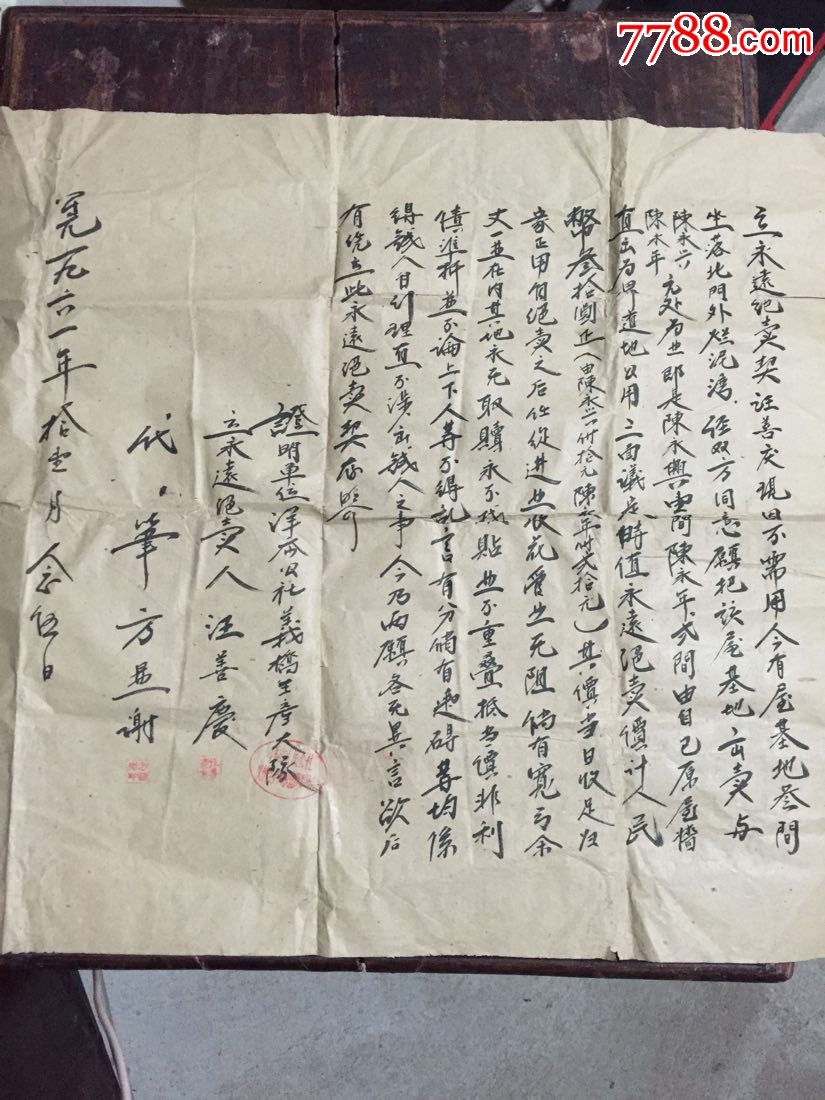 7788.com
立永遠絕賣契汪善庆現因不需用今有屋基地叁間
坐落北門外烂泥灣經双方同意願把該屋基地出賣与
陳永兴
陳永年
元处为业即是陳永興壹間陳永年弍間由自己原屋墻
直出为甲道地公用三面議定時值永遠絕賣價計人民
幣叁拾圓正(由陳永兴付拾元陳永年付弍拾元)其價當日收足归
家正用自絕賣之后任從進业收花管业无阻倘有寬弓余
丈一並在内其地永无取贖永不找貼並不重疊抵当價非利
債準折並不論上下人等不得乱言有分倘有違碍等均係
得錢人自行理直不涉出錢人之事今乃兩願各无異言欲后
有凭立此永遠絕賣契存照
證明單位洋西公社義橋生產大隊
立永遠絕賣人汪善慶
代筆方並謝
公元一九六一年拾壹月念伍日